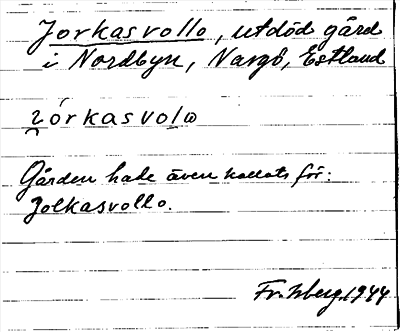 Jorkasvollo, utdöd gård
i Nordbyn, Nargö, Estland
i̯órkasvolω
Gården hade även kallats för:
Jolkasvollo.
Fr. Hberg. 1944